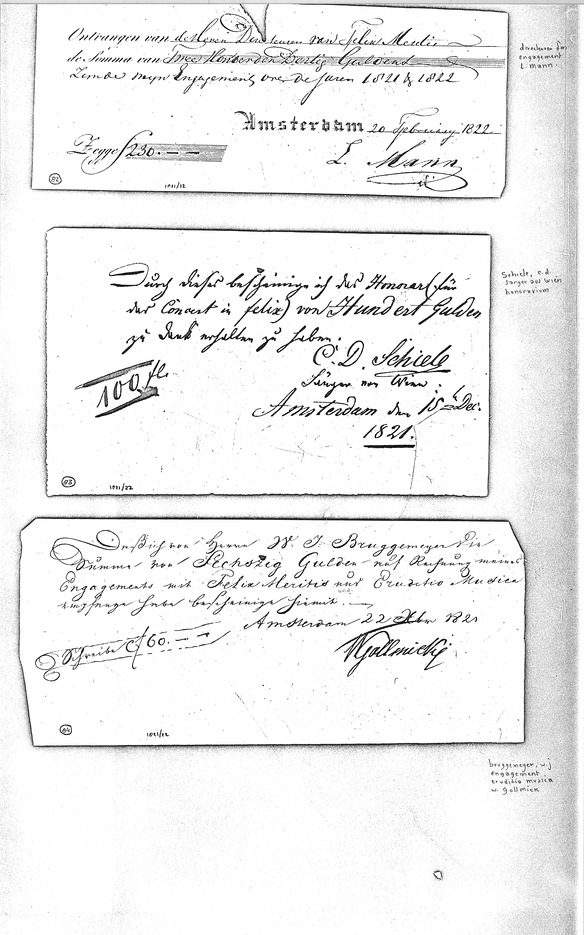 Ontvangen van de Heeren Directeuren van Felix Meritis
de Somma van Twee Honderd en Dertig Guldens
Zijnde mijn Engagement over de Jaren 1821 & 1822
Amsterdam 20 February 1822
Zegge ƒ 230.—
L. Mann
82
1021/22
directeuren
engagement
L. mann
Durch dieses bescheinige ich das Honorar (für
das Concert in felix) von Hundert Gulden
zu Dank erhalten zu haben.
C. D. Schiele
Sänger von Wien.
100 fl.
Amsterdam den 15t Dec.
1821.
83
1021/22
Schiele, c.d.
sanger aus wien
honorarium
Daß ich von Herrn W. J. Bruggemeyer die
Summe von Sechszig Gulden auf Rechnung meines
Engagements mit Felix Meritis und Eruditio Musica
empfangen habe bescheinige hiemit.
und
Amsterdam 22 Xbr 1821
Schreibe ƒ 60.—
W Gollmick
84
1021/22
bruggemeyer, w.j
engagement
eruditio musica
w. gollmick